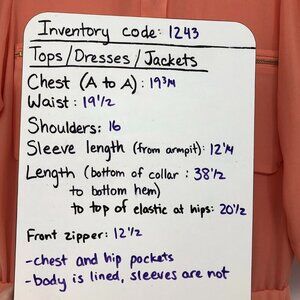 Inventory code: 1243
Tops/Dresses/Jackets
Chest (A to A): 19¾
Waist: 19½
Shoulders: 16
Sleeve length (from armpit): 12¼
Length (bottom of collar : 38½
to bottom hem)
to top of elastic at hips: 20½
Front zipper: 12½
-chest and hip pockets
-body is lined, sleeves are not